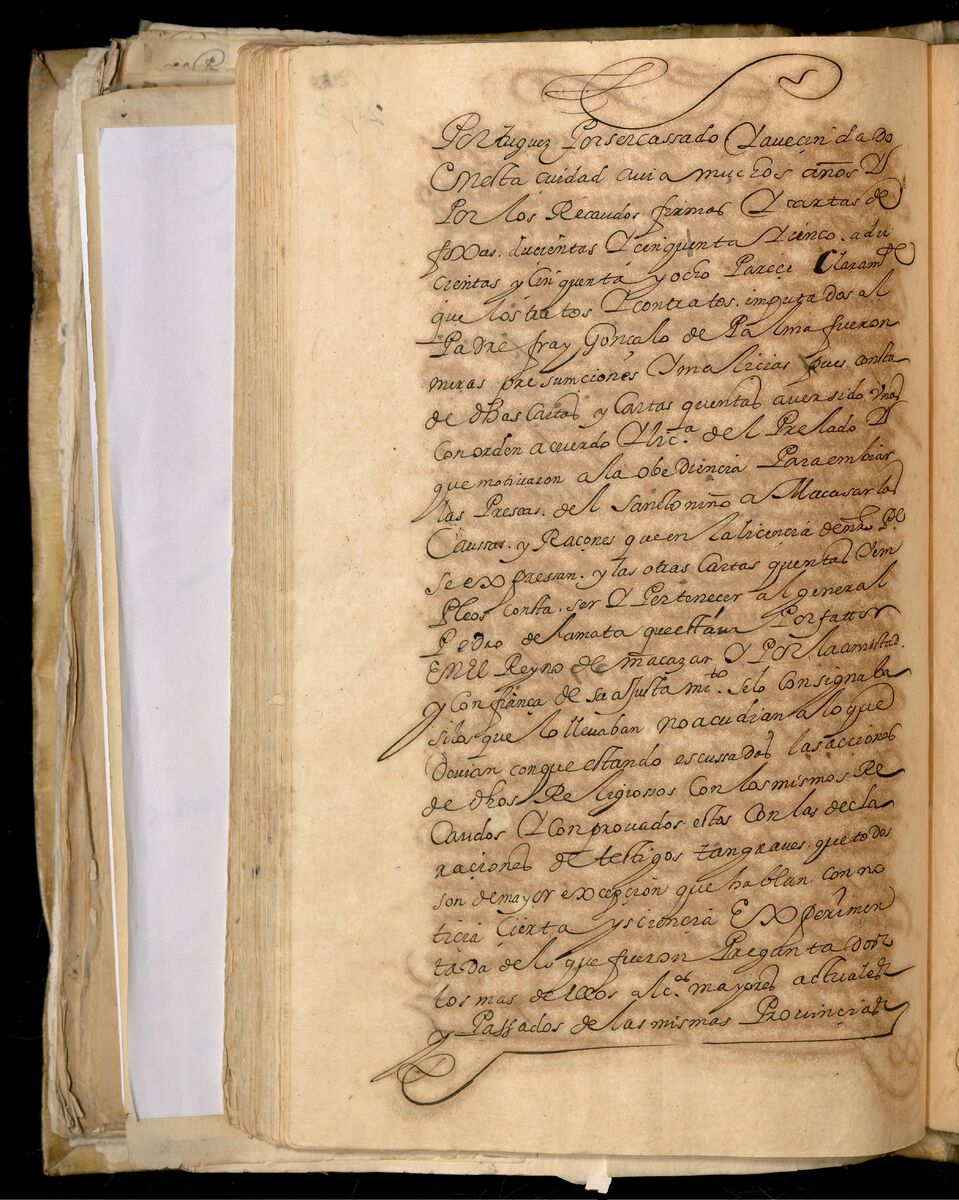 Portuguez Por ser cassado Y avecindado
Enesta ciudad avia muchos años Y
Por los Recaudos firmas Y cartas de
foxas. ducientas Y cinquenta Y cinco. a du
cientas y cinquenta y ocho Pareçe Claramte
que los tratos Y contratos. imputados al
Padre fray Gonçalo de Palma fueron
meras presumciones Y malicias pues consta
de dhas Cartas y Cartas quentas aver sido Unas
con orden acuerdo Y lica del Prelado Y
que motivaron a la obediencia Para embiar
las Preseas. del Sancto niño a Macasar las
Caussas. y Raçones que en la licencia de nro Pe
se expresan. y las otras Cartas quentas Y em
Pleos consta. ser Y Pertenecer al general
Pedro de la mata que estava Por fattor
En el Reyno de macazar Y Por la amistad.
y Confiança de su ajustamito. selo consignaba
si los que lo llevaban no acudian a lo que
Devian con que estando escussados las acciones
de dhos Religiossos con los mismos Re
Caudos Y conprovados estos con las decla
raciones de testigos tan graves. que todos
son de mayor excepcion que hablan con no
ticia Cierta y sciencia Experimen
tada de lo que fueron Preguntados
los mas de ellos alces mayores actuales
y Passados de las mismas Provincias